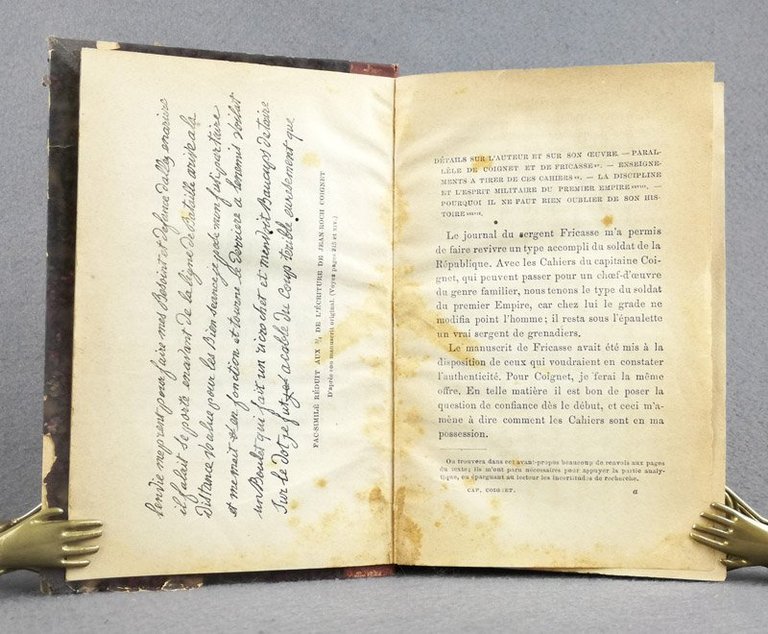 l'envie me prent pour faire mes Besoint et Defance d'allez enariere
il falait se porte enavant de la ligne de Bataille arive a la
Distance voulue pour les Bien seance je pose mon fusi par taire
et me mait en fonction et tourne le derriere a lenemis voilat
un Boulet qui fait un ricrochet et m'endoit Baucoup de taire
sur le dot je fut acablé du coup terrible euresement que
FAC-SIMILÉ RÉDUIT AUX DE L'ÉCRITURE DE JEAN-ROCH COIGNET
D'après son manuscrit original. (Voyez pages 215 et XIV.)
DÉTAILS SUR L'AUTEUR ET SUR SON ŒUVRE. — PARAL-
LÈLE DE COIGNET ET DE FRICASSE — ENSEIGNE-
MENTS A TIRER DE CES CAHIERS — LA DISCIPLINE
ET L'ESPRIT MILITAIRE DU PREMIER EMPIRE —
POURQUOI IL NE FAUT RIEN OUBLIER DE SON HIS-
TOIRE
Le journal du sergent Fricasse m'a permis
de faire revivre un type accompli du soldat de la
République. Avec les Cahiers du capitaine Coi-
gnet, qui peuvent passer pour un chœf-d'œuvre
du genre familier, nous tenons le type du soldat
du premier Empire, car chez lui le grade ne
modifia point l'homme; il resta sous l'épaulette
un vrai sergent de grenadiers.
Le manuscrit de Fricasse avait été mis à la
disposition de ceux qui voudraient en constater
l'authenticité. Pour Coignet, je ferai la même
offre. En telle matière il est bon de poser la
question de confiance dès le début, et ceci m'a-
mène à dire comment les Cahiers sont en ma
possession.
On trouvera dans cet avant-propos beaucoup de renvois aux pages
du texte; ils m'ont paru nécessaires pour appuyer la partie analy-
tique, en épargnant au lecteur les incertitudes de recherche.
CAP. COIGNET. a